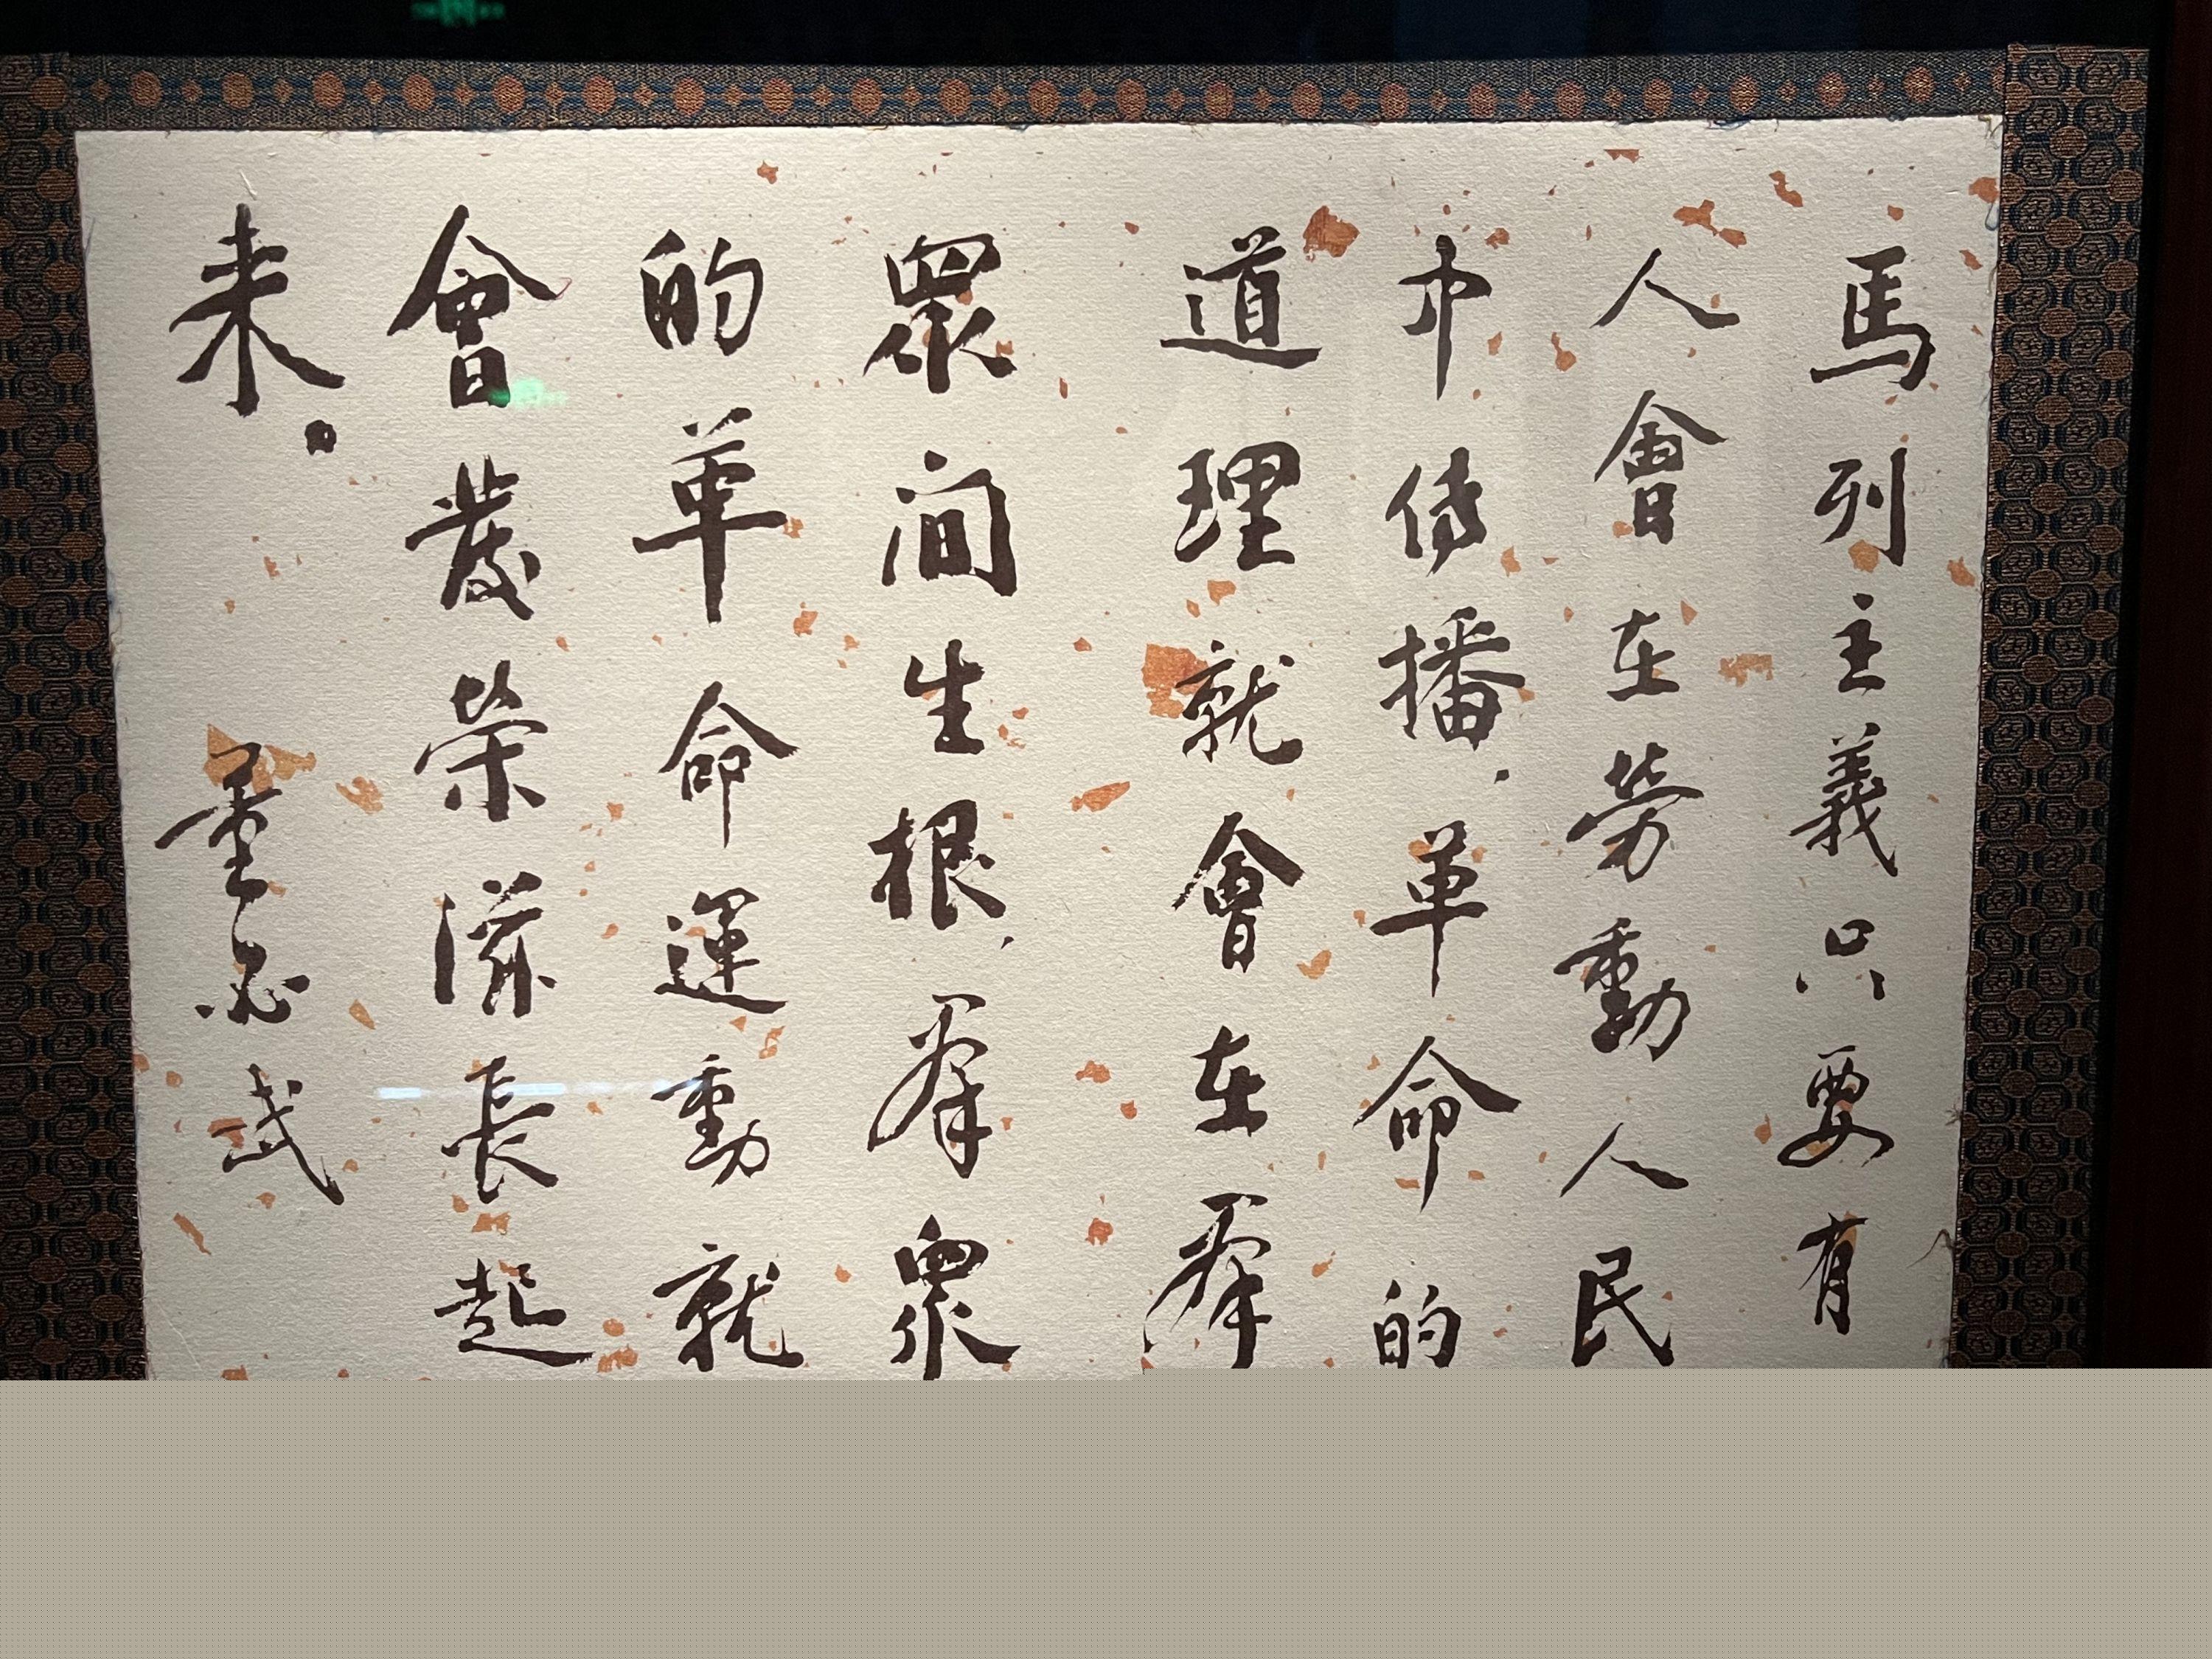 馬列主義只要有
人會在勞動人民
中傳播.革命的
道理就會在羣
眾间生根,羣眾
的革命運動就
會發榮滋長起
来。
董必武